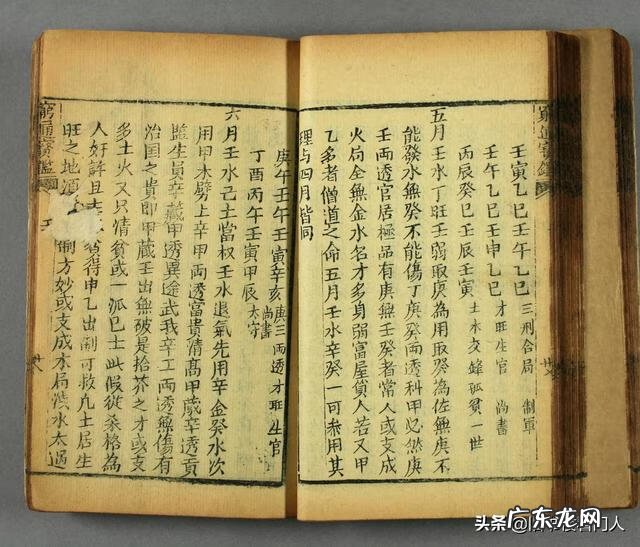 窮通寶鑑
壬寅乙巳壬午乙巳 三刑合局 制軍
壬午乙巳壬申乙巳 才旺生官 尚書
丙辰癸巳壬辰壬寅 土水交鋒孤貧一世
五月壬水丁旺壬弱取庚為用取癸為佐無庚不
能發水無癸不能傷丁庚癸兩透科甲必然庚
壬兩透官居極品有庚無壬癸者常人或支成
火局全無金水名才多身弱富屋貧人若又甲
乙多者僧道之命五月壬水辛癸一可參用其
理与四月皆同
庚午壬午壬寅辛亥 庚三兩透才旺生官 尚書
丁酉丙午壬寅甲辰 太守
六月壬水己土當權壬水退氣先用辛金癸水次
用甲木劈土辛甲兩透富貴清高甲藏辛透貢
監生員辛藏甲透異途武我辛工兩透無傷有
治国之貴即甲藏壬出無破是拾芥之才或支
多土火又只清貧或一派巳士此假從桑格為
人奸詐且若得申乙出制可救凡土居生
旺之地須制方妙或支成水局洪水太過
窮通寶鑑
廿八
头条
广东龙网